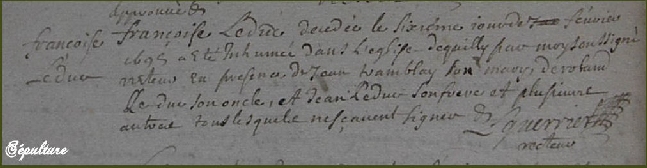 approuvé
françoise Leduc decedée le sixiême iour de feuvrier
françoise
Leduc
1695 a eté Inhumée dans l'eglise de quilly par moy soussigné
recteur En presence de Jean tramblay son mary, de roland
Le duc son oncle, et Jean Leduc son frere et plusieurs
autres tous lesquels ne sçauent signer Guerrier
recteur
Sépulture